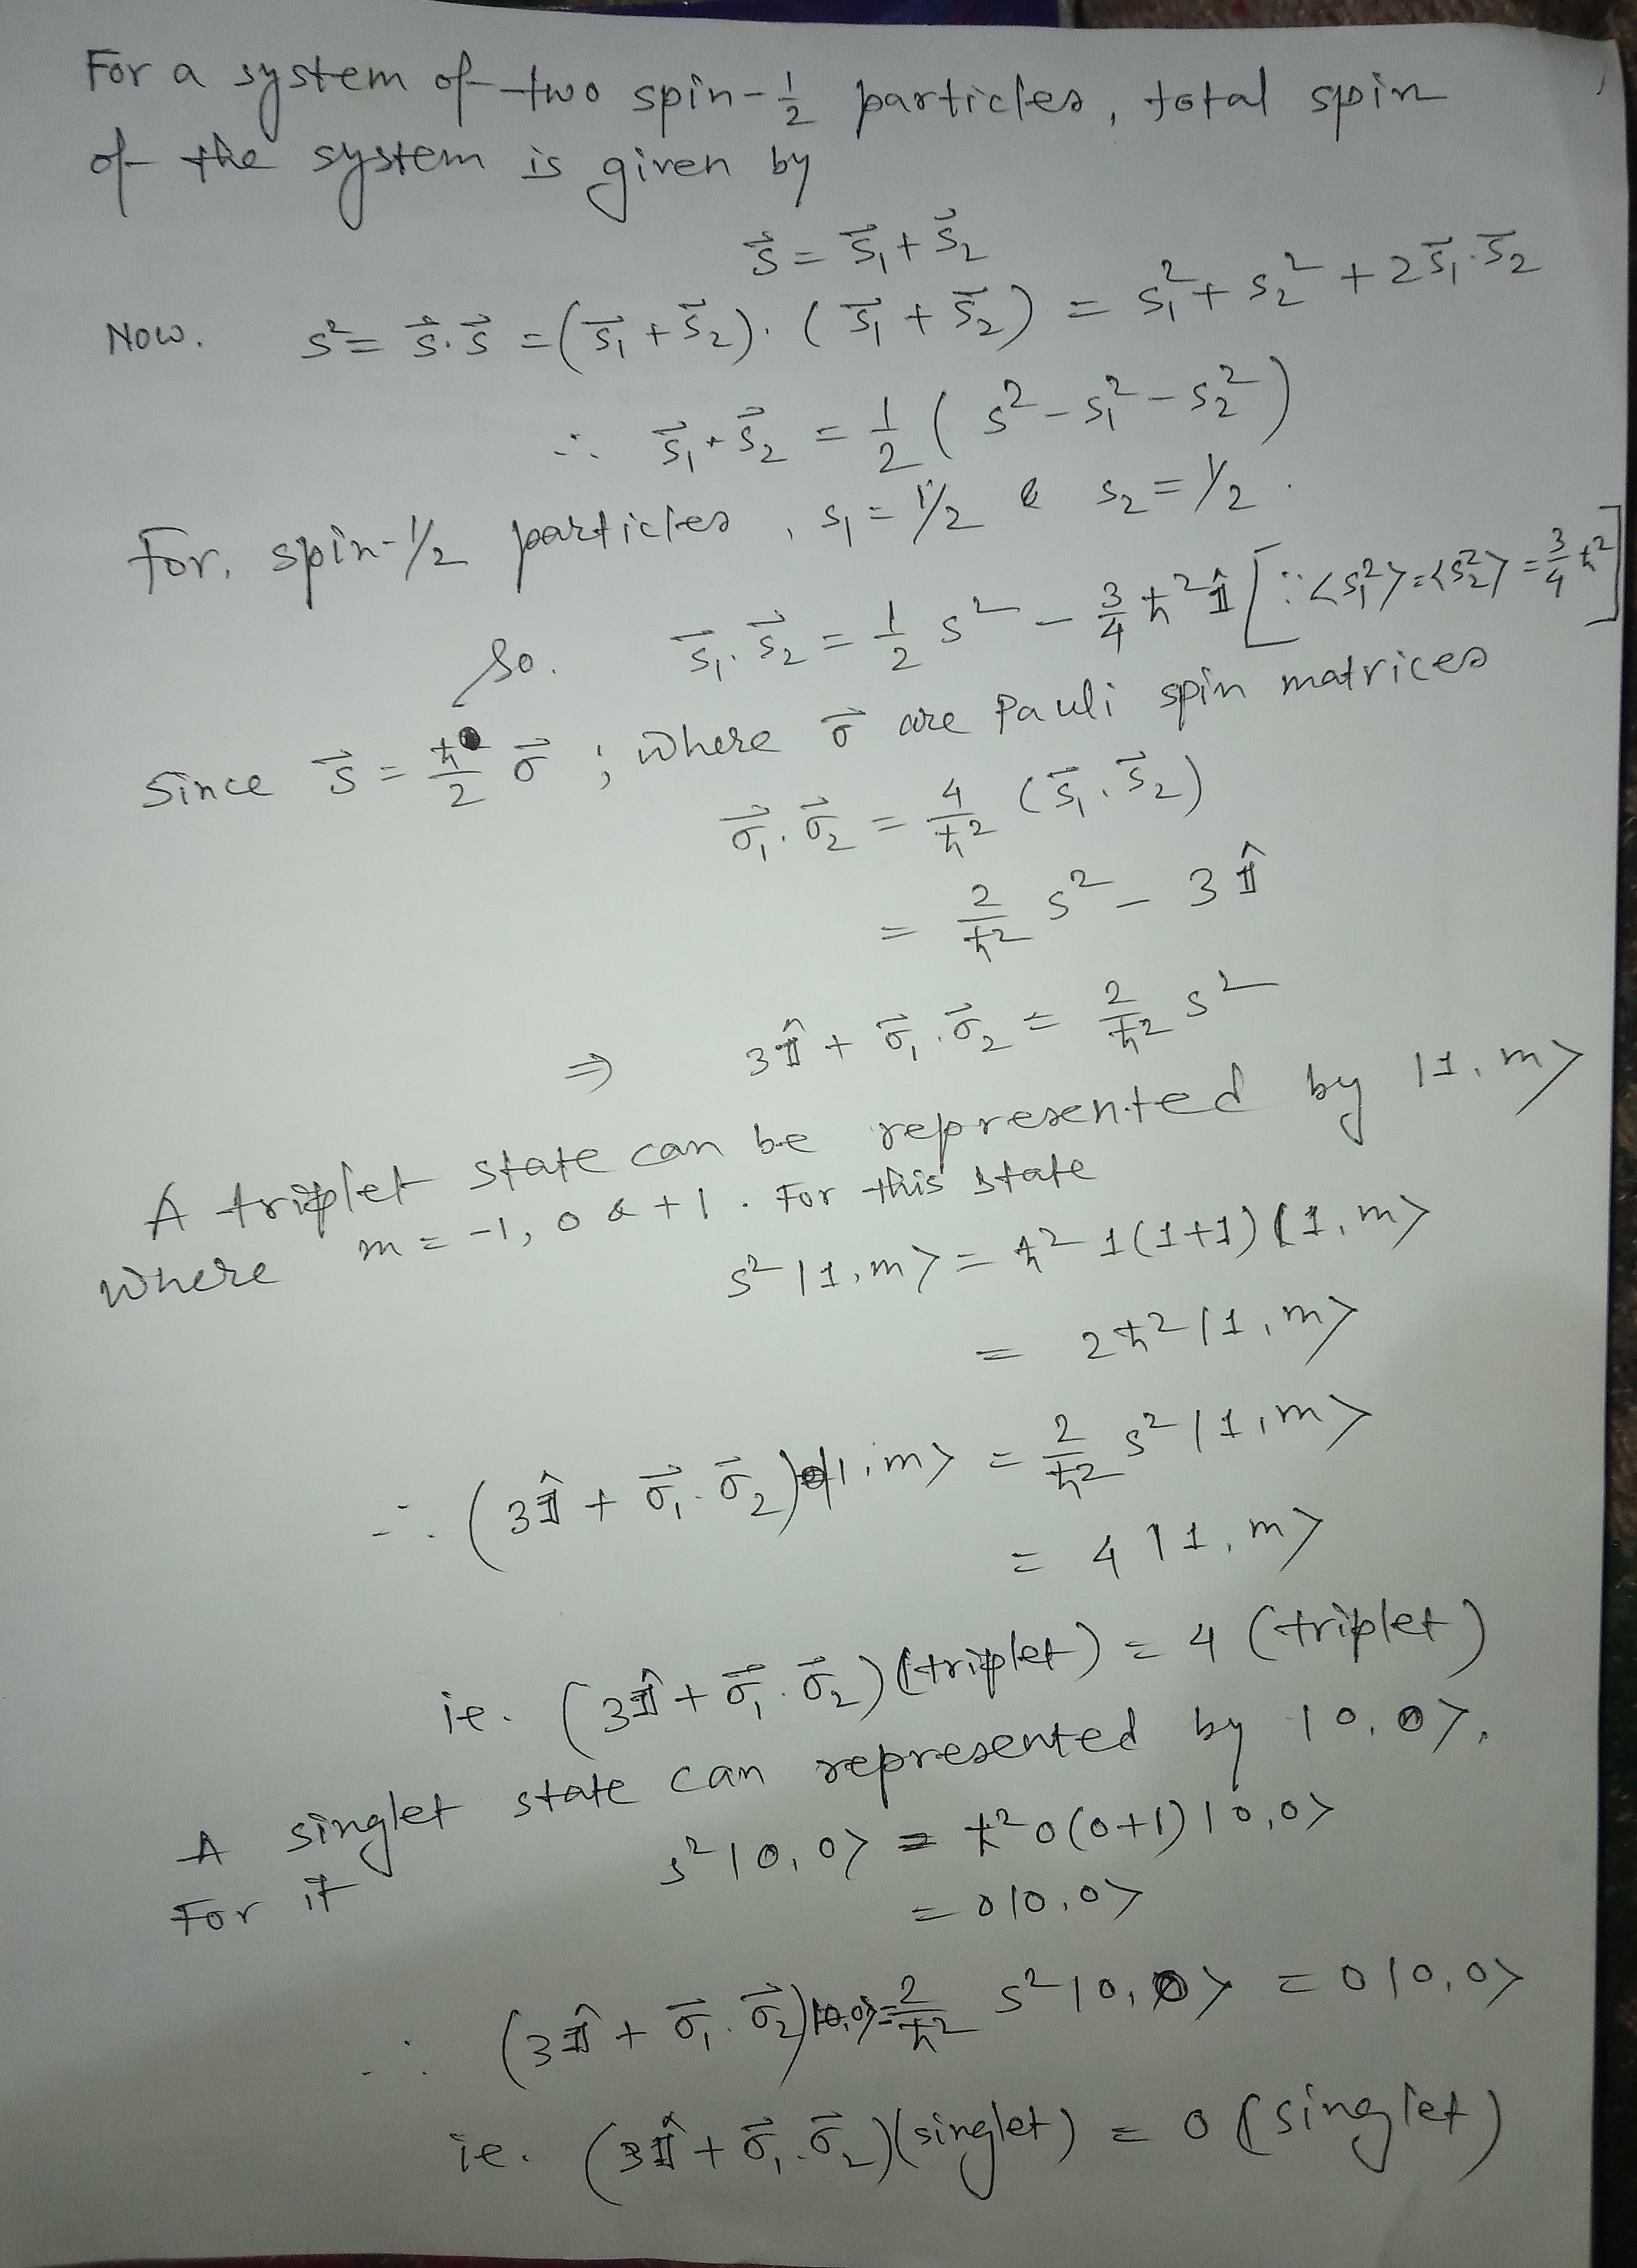 For a system of two spin-½ particles, total spin
of the system is given by
S⃗ = S⃗₁ + S⃗₂
Now. S² = S⃗.S⃗ = (S⃗₁ + S⃗₂).(S⃗₁ + S⃗₂) = S₁² + S₂² + 2S⃗₁.S⃗₂
∴ S⃗₁.S⃗₂ = 1/2 (S² - S₁² - S₂²)
For, spin-1/2 particles, s₁ = 1/2 & s₂ = 1/2.
So. S⃗₁.S⃗₂ = 1/2 S² - 3/4 ħ² 𝟙̂ [∵ <S₁²> = <S₂²> = 3/4 ħ²]
Since S⃗ = ħ/2 σ⃗ ; where σ⃗ are Pauli spin matrices
σ⃗₁.σ⃗₂ = 4/ħ² (S⃗₁.S⃗₂)
= 2/ħ² S² - 3 𝟙̂
⇒ 3𝟙̂ + σ⃗₁.σ⃗₂ = 2/ħ² S²
A triplet state can be represented by |1, m>
where m = -1, 0 & +1. For this state
S² |1, m> = ħ² 1(1+1) |1, m>
= 2ħ² |1, m>
∴ (3𝟙̂ + σ⃗₁.σ⃗₂)|1, m> = 2/ħ² S² |1, m>
= 4 |1, m>
ie. (3𝟙̂ + σ⃗₁.σ⃗₂)(triplet) = 4 (triplet)
A singlet state can represented by |0, 0>.
For it S² |0, 0> = ħ² 0(0+1) |0, 0>
= 0 |0, 0>
∴ (3𝟙̂ + σ⃗₁.σ⃗₂)|0, 0> = 2/ħ² S² |0, 0> = 0 |0, 0>
ie. (3𝟙̂ + σ⃗₁.σ⃗₂)(singlet) = 0 (singlet)